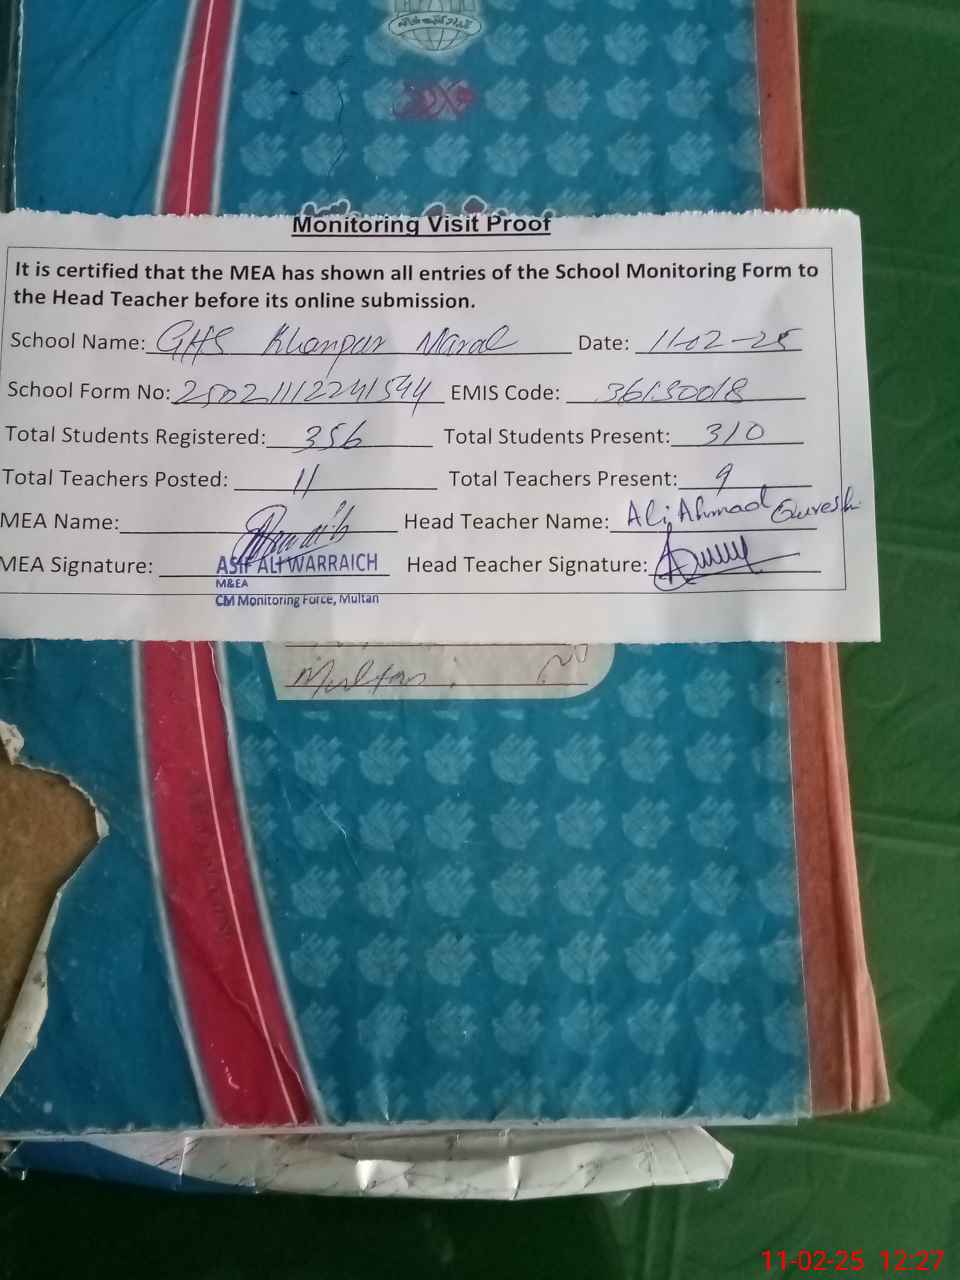 Monitoring Visit Proof
It is certified that the MEA has shown all entries of the School Monitoring Form to
the Head Teacher before its online submission.
School Name: GHS Khanpur Maral Date: 11-02-25
School Form No: 25021112241544 EMIS Code: 36130018
Total Students Registered: 356 Total Students Present: 310
Total Teachers Posted: 11 Total Teachers Present: 9
MEA Name: Head Teacher Name: Ali Ahmad Qureshi
MEA Signature: ASIF ALI WARRAICH Head Teacher Signature:
M&EA
CM Monitoring Force, Multan
Multan
11-02-25 12:27